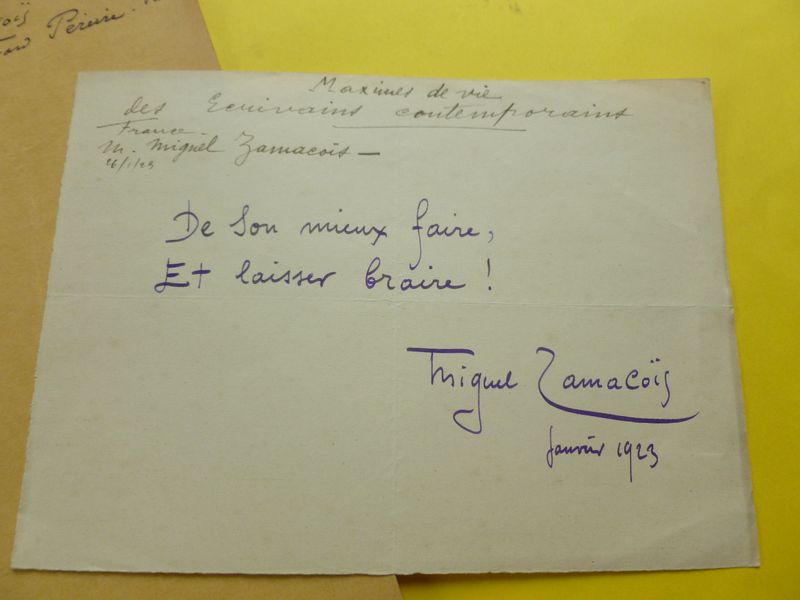 Pereire
Maximes de vie
des Ecrivains contemporains
France.
M. Miguel Zamacoïs —
26/1/23
De son mieux faire,
Et laisser braire !
Miguel Zamacoïs
Janvier 1923